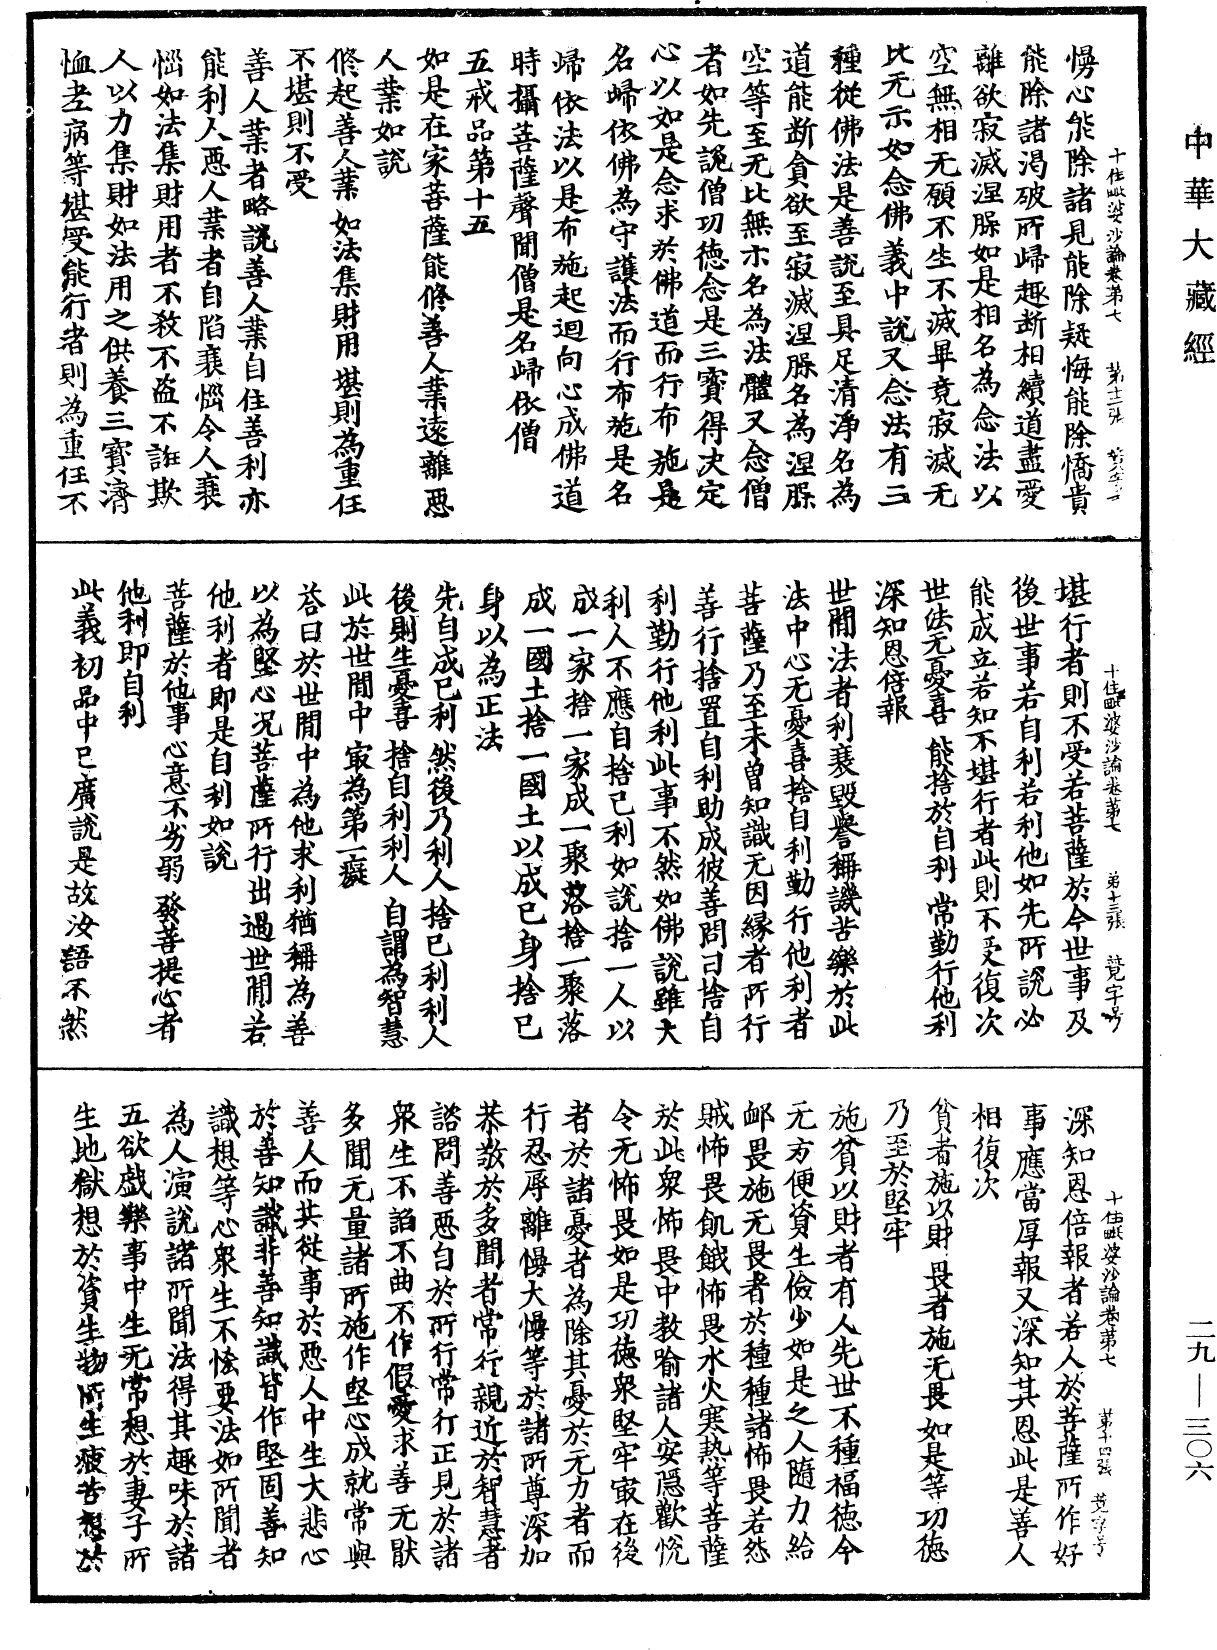 中華大藏經
二九—三〇六
十住毗婆沙論卷第七 第十二張
慢心能除諸見能除疑悔能除憍貴
能除諸渴破所歸趣断相續道盡愛
離欲寂滅涅脲如是相名為念法以
空無相无願不生不滅畢竟寂滅无
比无示如念佛義中說又念法有三
種從佛法是善說至具足清淨名為
道能断貪欲至寂滅涅脲名為涅脲
空等至无比無示名為法體又念僧
者如先說僧功德念是三寶得决定
心以如是念求於佛道而行布施是
名歸依佛為守護法而行布施是名
歸依法以是布施起迴向心成佛道
時攝菩薩聲聞僧是名歸依僧
五戒品第十五
如是在家菩薩能脩善人業遠離惡
人業如說
脩起善人業 如法集財用 堪則為重任
不堪則不受
善人業者略說善人業自住善利亦
能利人惡人業者自陷衰惱令人衰
惱如法集財用者不殺不盗不誑欺
人以力集財如法用之供養三寶濟
恤老病等堪受能行者則為重任不
十住毗婆沙論卷第七 第十三張 覽字号
堪行者則不受若菩薩於今世事及
後世事若自利若利他如先所說必
能成立若知不堪行者此則不受復次
世法无憂喜 能捨於自利 常勤行他利
深知恩倍報
世間法者利衰毀譽稱譏苦樂於此
法中心无憂喜捨自利勤行他利者
菩薩乃至未曾知識无因緣者所行
善行捨置自利助成彼善問曰捨自
利勤行他利此事不然如佛說雖大
利人不應自捨己利如說捨一人以
成一家捨一家成一聚落捨一聚落
成一國土捨一國土以成己身捨己
身以為正法
先自成已利 然後乃利人 捨已利利人
後則生憂喜 捨自利利人 自謂為智慧
此於世間中 㝡為第一癡
荅曰於世間中為他求利猶稱為善
以為堅心况菩薩所行出過世間若
他利者即是自利如說
菩薩於他事 心意不劣弱 發菩提心者
他利即自利
此義初品中已廣說是故汝語不然
十住毗婆沙論卷第七 第十四張 覽字号
深知恩倍報者若人於菩薩所作好
事應當厚報又深知其恩此是善人
相復次
貧者施以財 畏者施无畏 如是等功德
乃至於堅牢
施貧以財者有人先世不種福德今
无方便資生儉少如是之人隨力給
邺畏施无畏者於種種諸怖畏若怨
賊怖畏飢餓怖畏水火寒熱等菩薩
於此衆怖畏中教喻諸人安隱歡悦
令无怖畏如是功德衆堅牢㝡在後
者於諸憂者為除其憂於无力者而
行忍辱離慢大慢等於諸所尊深加
恭敬於多聞者常行親近於智慧者
諮問善惡自於所行常行正見於諸
衆生不諂不曲不作假愛求善无猒
多聞无量諸所施作堅心成就常與
善人而共從事於惡人中生大悲心
於善知識非善知識皆作堅固善知
識想等心衆生不悋要法如所聞者
為人演說諸所聞法得其趣味於諸
五欲戯樂事中生无常想於妻子所
生地獄想於資生物所生疲苦想於